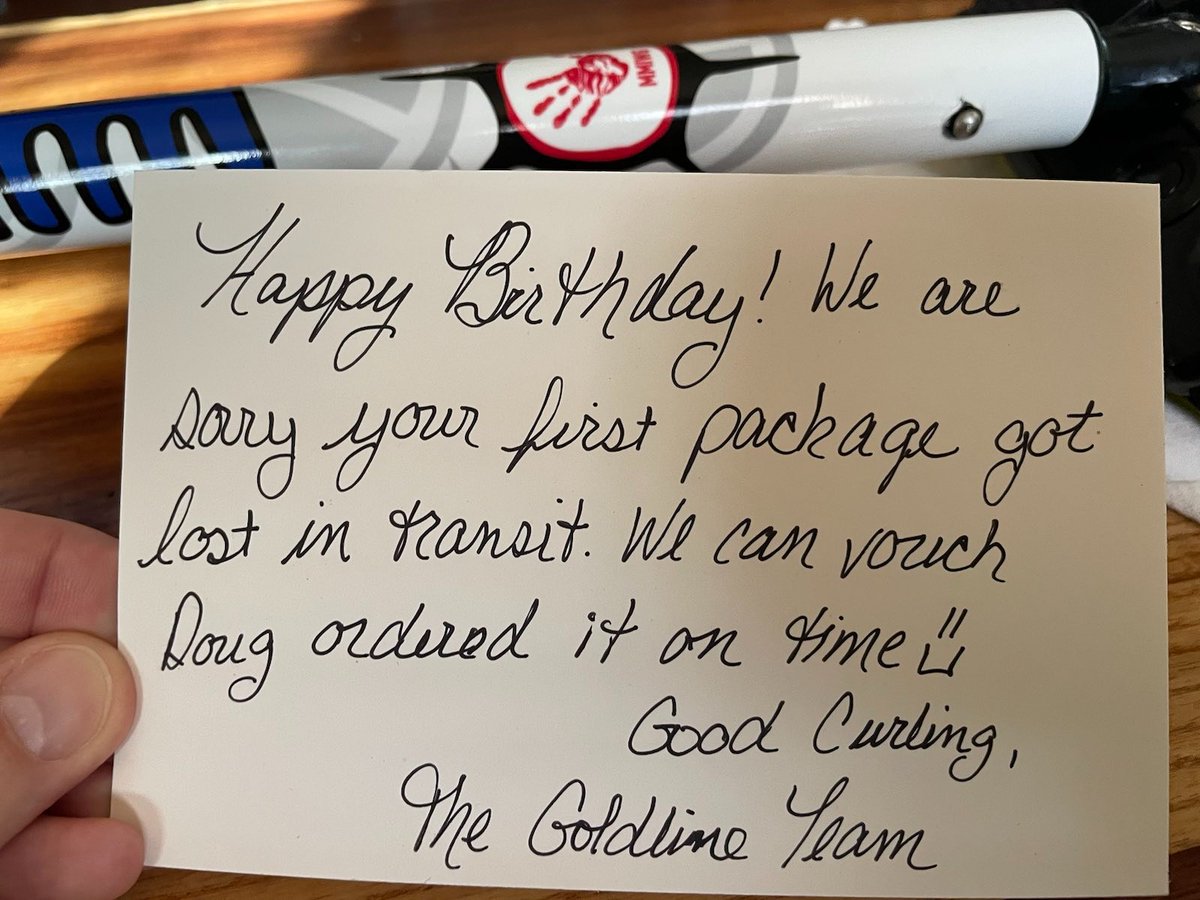 Happy Birthday! We are
sorry your first package got
lost in transit. We can vouch
Doug ordered it on time
Good Curling,
The Goldline Team